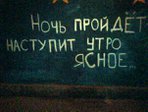 НОЧЬ ПРОЙДЁТ
НАСТУПИТ УТРО
ЯСНОЕ...